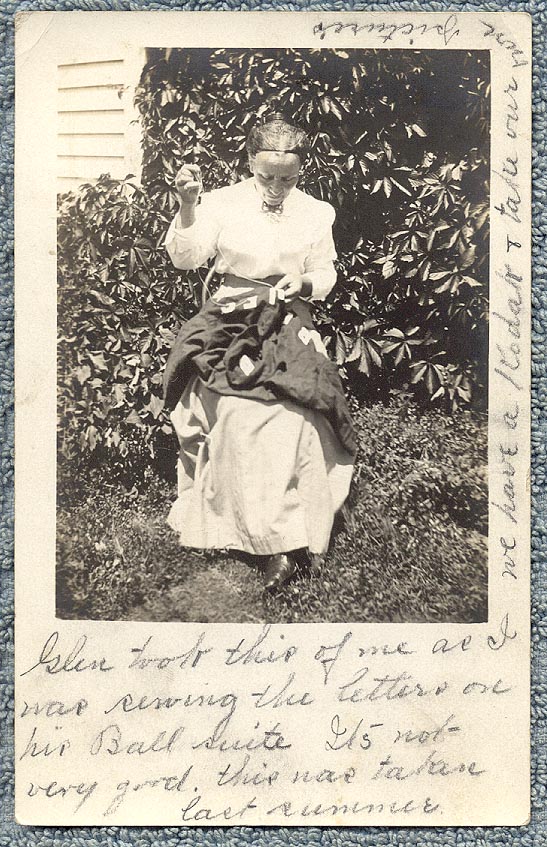 Glen took this of me as I
was sewing the letters on
his Ball suite Its not
very good. this was taken
last summer.
we have a Kodak & take our own
pictures